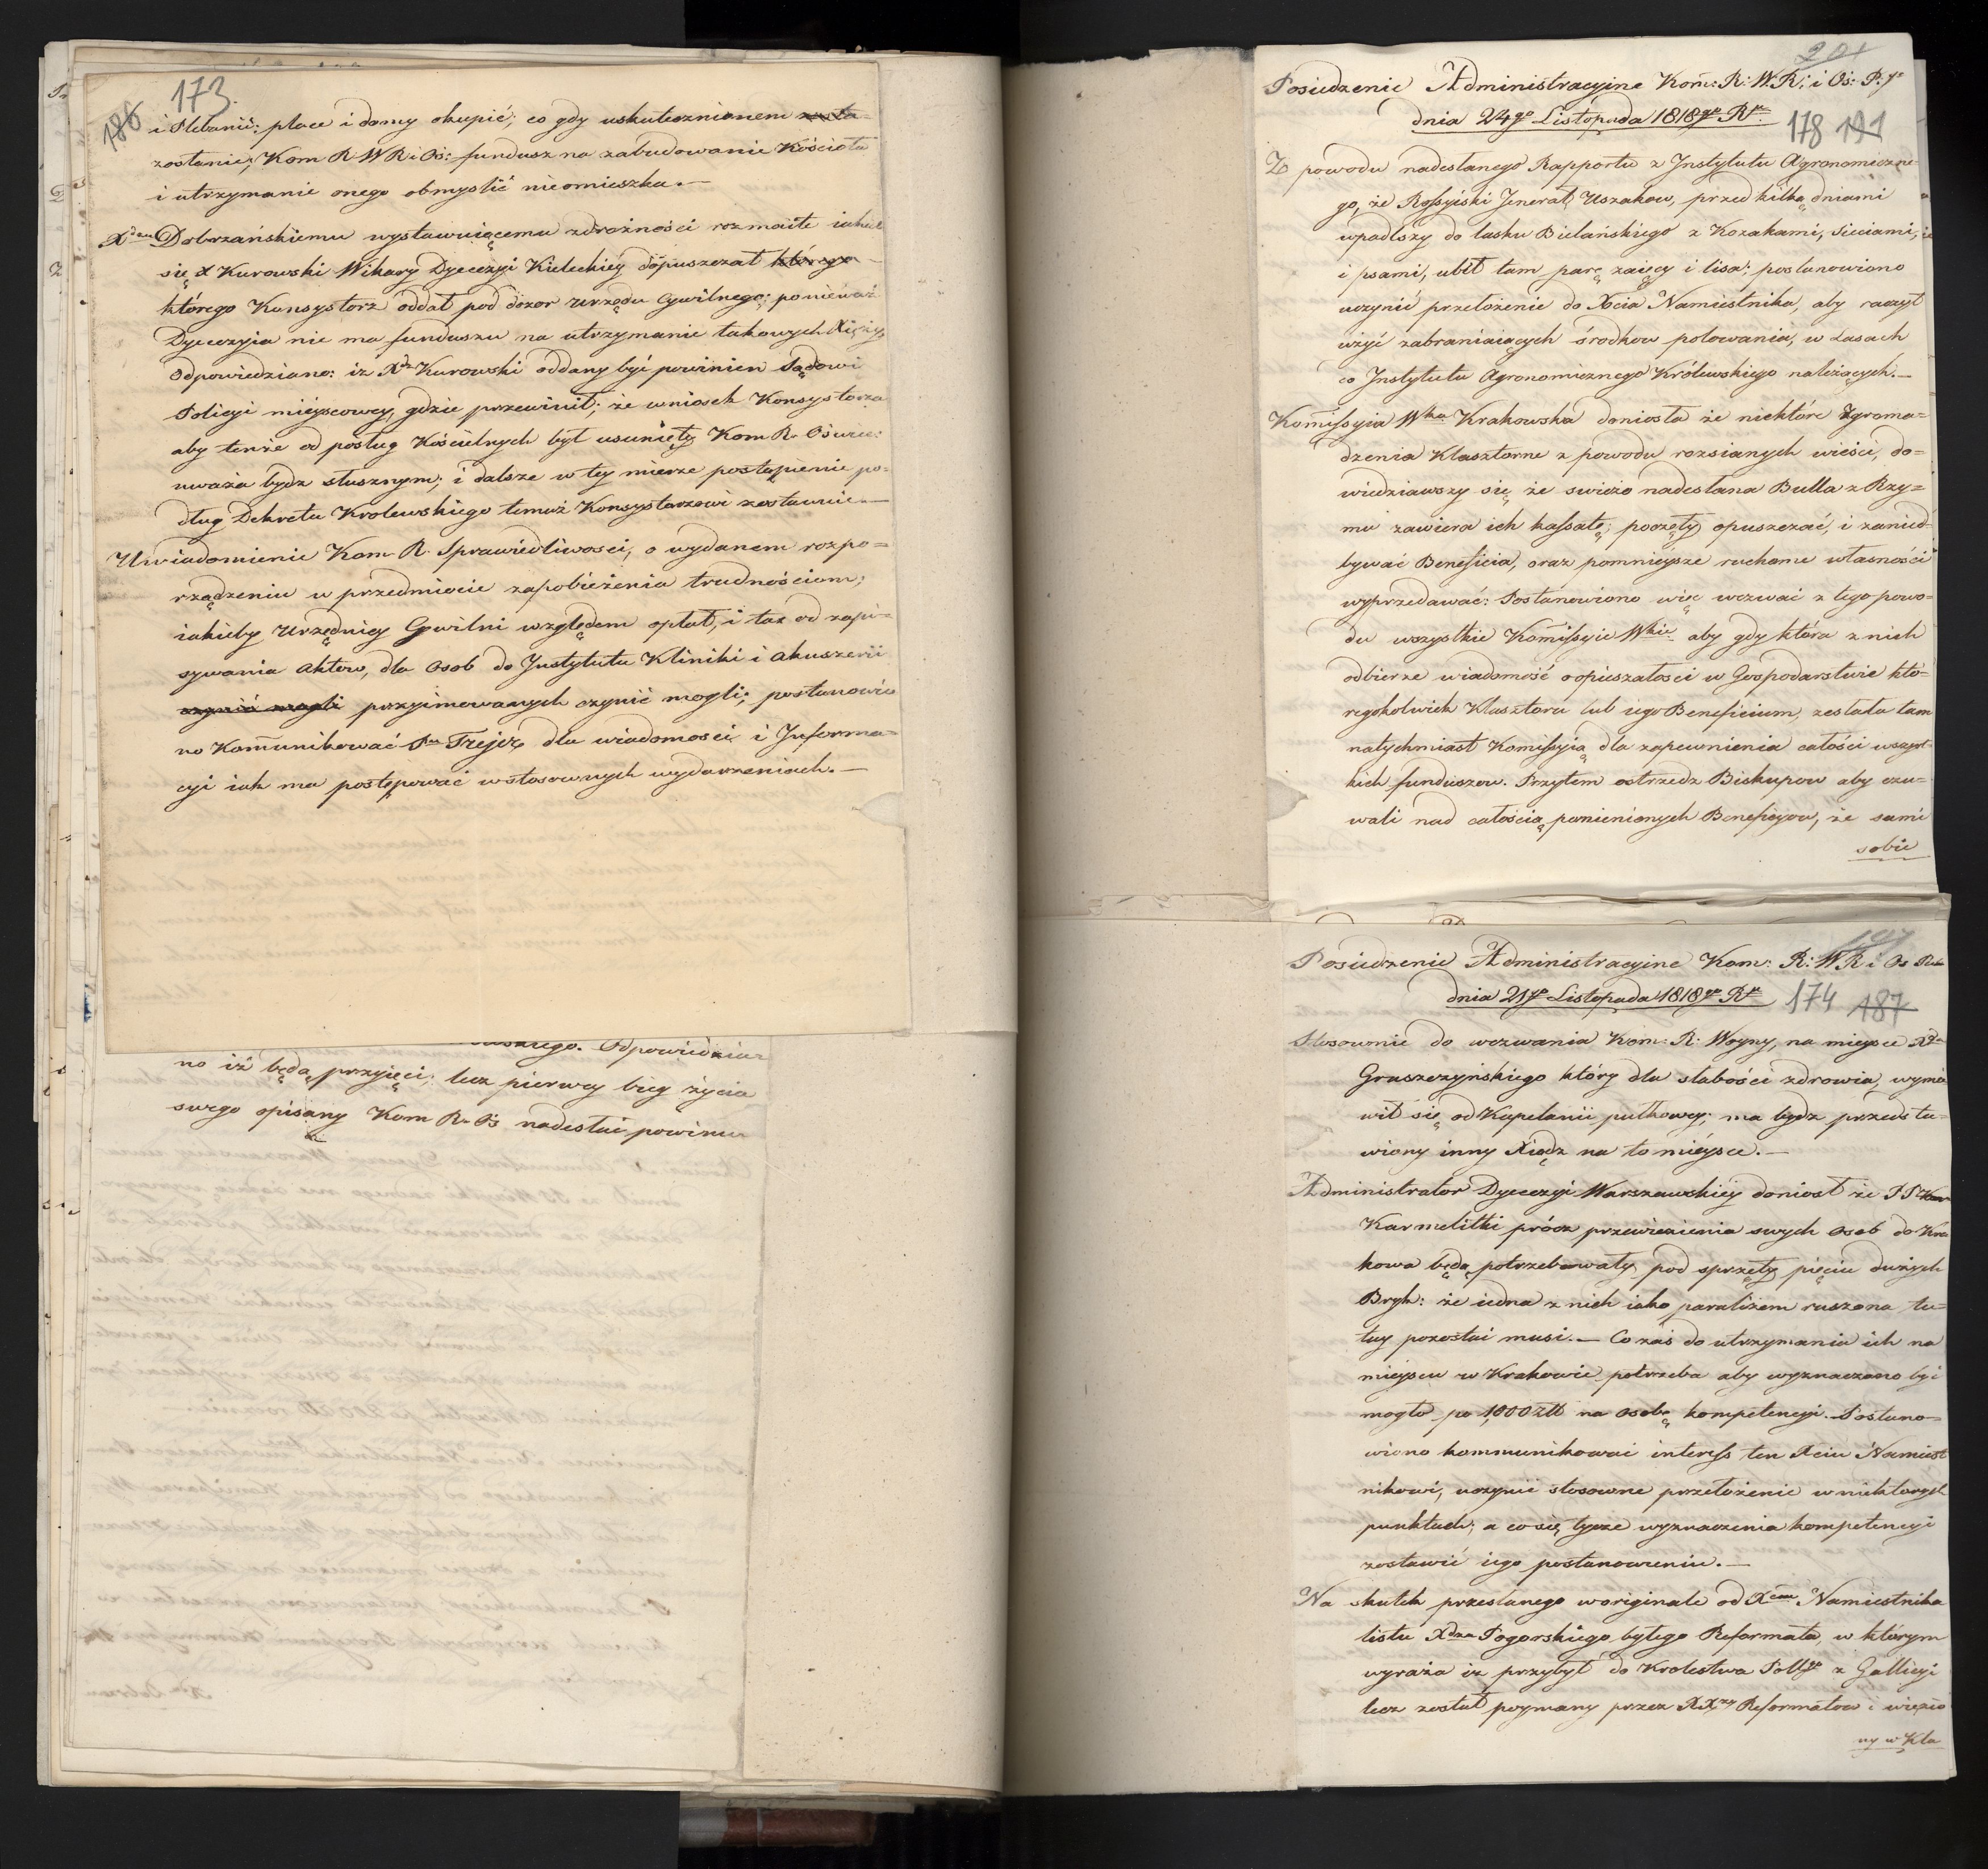 173.
186
i Plebanić: place i domy okupić; co gdy uskutecznionem zosta-
zostanie; Kom R. W R i Oś: fundusz na zabudowanie Kościoła
i utrzymanie onego obmyslić nieomieszka. —
Dobrzańskiemu wystawuiącemu zdrożności rozmaite iakich
się X Kurowski Wikary Dyecezyi Kieleckiey dopuszczał którego
którego Konsystorz oddał pod dozor Urzędu Cywilnego; ponieważ
Dyecezyia nie ma funduszu na utrzymanie takowych Xięży,
odpowiedziano: iż Xdz Kurowski oddany być powinien Sądowi
Policyi mieyscowey, gdzie przewinił; że wniosek Konsystorza
aby tenże od posług Kościelnych był usunięty Kom R. Oświec:
uważa bydz słusznym; i dalsze w tey mierze postąpienie po=
dług Dekretu Krolewskiego temuż Konsystorzowi zostawuie. —
Uwiadomienie Kom R. Sprawiedliwosci, o wydanem rozpo=
rządzeniu w przedmiocie zapobieżenia trudnościom;
iakieby Urzędnicy Cywilni względem opłat, i tax od zapi-
sywania aktow, dla osob do Instytutu Kliniki i Akuszerii
czynić mogli przyimowanych czynić mogli; postanowio
no Kommunikować Pu Trejer dla wiadomosci i Informa=
cyi iak ma postępować w stosownych wydarzeniach. —
Odpowiedzia
no iż będą przyięci; lecz pierwey bieg życia
swego opisany Kom R. Oś nadesłać powinni
Posiedzenie Administracyine Kom: R: W. R: i Oś: P:go
dnia 24go Listopada 1818go Rku
178 191
Z powodu nadesłanego Rapportu z Instytutu Agronomiczne-
go, że Rossyiski Jenerał Uszakow, przed kilką dniami
wpadłszy do lasku Bielańskiego z Kozakami, sieciami,
i psami, ubił tam parę zaięcy i lisa; postanowiono
uczynić przełożenie do Xcia Namiestnika, aby raczył
użyć zabraniaiących środkow polowania, w Lasach
co Instytutu Agronomicznego Królewskiego należących. —
Komissyia Wka Krakowska doniosła że niektóre Zgroma=
dzenia Klasztorne z powodu rozsianych wieści, do=
wiedziawszy się że swieżo nadesłana Bulla z Rzy=
mu zawiera ich kassatę; poczęły opuszczać, i zanied-
bywać Beneficia, oraz pomnieysze ruchome własności
wyprzedawać: Postanowiono więc wezwać z tego powo=
du wszystkie Komissyie Wkie aby gdy która z nich
odbierze wiadomość o opieszałosci w Gospodarstwie któ=
regokolwiek Klasztoru lub iego Beneficium, zesłała tam
natychmiast Komissyią dla zapewnienia całości wszyst-
kich funduszow. Przytem ostrzedz Biskupow aby czu=
wali nad całością pomienionych Beneficyow, że sami
sobie
Posiedzenie Administracyine Kom: R: W R i Os Pub
dnia 21go Listopada 1818go Rku
174 187
Stosownie do wezwania Kom: R: Woyny, na mieysce Xdza
Gruszczyńskiego który dla słabości zdrowia, wymó
wił się od Kapelanii pułkowey; ma bydz przedsta=
wiony inny Xiądz na to mieysce. —
Administrator Dyecezyi Warszawskiey doniosł że PP Kar
Karmelitki prócz przewiezienia swych osob do Kra
kowa będą potrzebowały pod sprzęty pięciu dużych
Bryk: że iedna z nich iako paraliżem ruszona tu=
tay pozostać musi. — Co zaś do utrzymania ich na
mieyscu w Krakowie potrzeba aby wyznaczono być
mogło po 1,000 złł na osobę kompetencyi. Postano=
wiono kommunikować interess ten Xciu Namiest
nikowi, uczynić stosowne przełożenie w niektorych
punktach; a co się tycze wyznaczenia kompetencyi
zostawić iego postanowieniu. —
Na skutek przesłanego w originale od Xcia Namiestnika
listu Xdza Pogorskiego byłego Reformata, w którym
wyraża iż przybył do Krolestwa Pollgo z Gallicyi
lecz został poymany przez XXzy Reformatow i więzio
ny w Kla